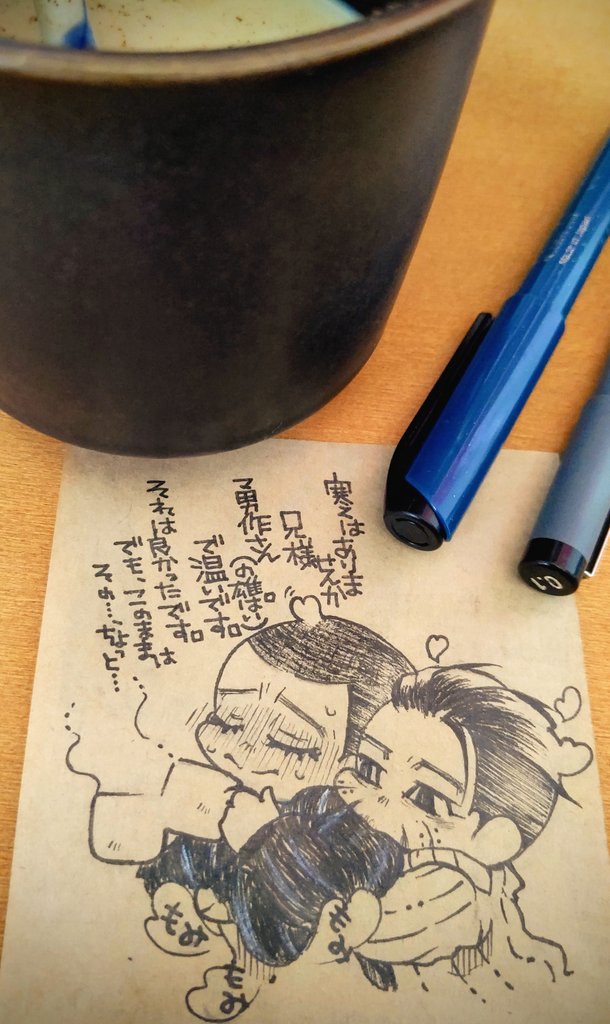 寒くはありま
せんか
兄様
勇作さん(の雄ぱい)
で温いです。
それは良かったです。
でも、このままは
その…ちょっと…
もみ
もみ
もみ
0.1